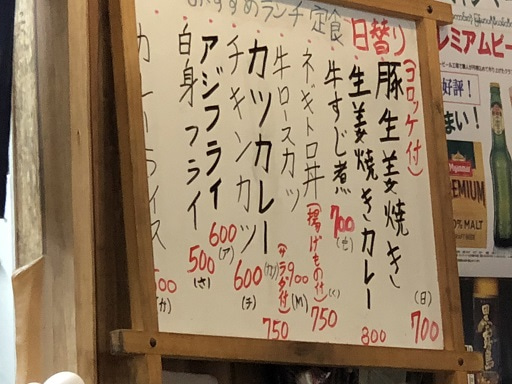 おすすめランチ定食
日替り
(コロッケ付)
豚生姜焼き
(日)
700
生姜焼きカレー
800
牛すじ煮
700
(七)
ネギトロ丼
(揚げもの付)
(く)
750
牛ロースカツ
900
(M)
(サラダ付)
750
カツカレー
(カツ)
チキンカツ
600
(チ)
アジフライ
600
(ア)
白身フライ
500
(さ)
カレーライス
500
(カ)
プレミアムビー
好評!
まい!
Myanmar
PREMIUM
100% MALT